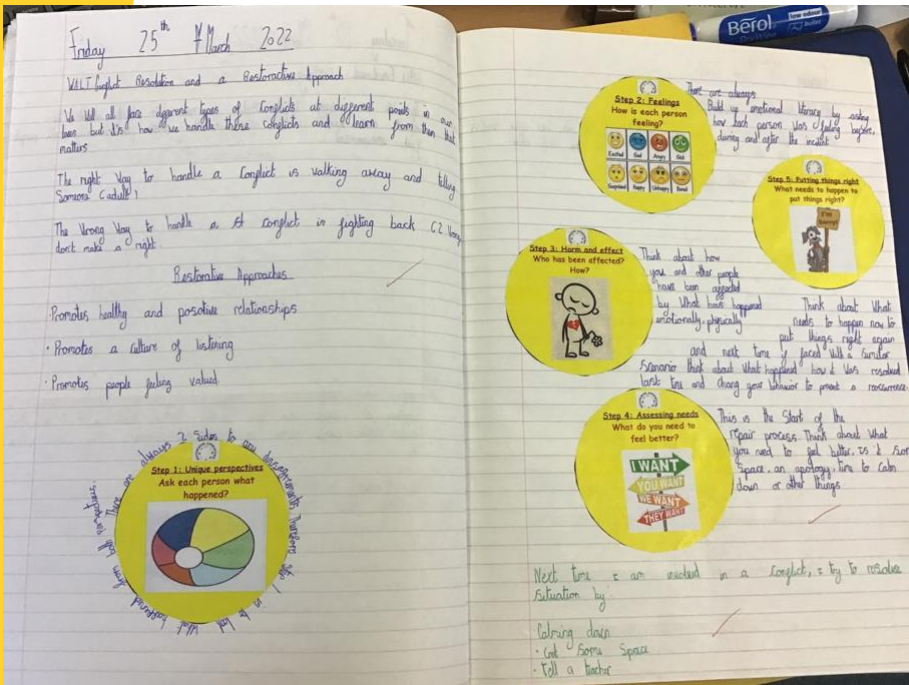 Friday 25th March 2022
WALT Conflict Resolution and a Restorative Approach
We will all face different types of conflicts at different points in our
lives but it's how we handle these conflicts and learn from them that
matters
The right way to handle a conflict is walking away and telling
Someone (adult)
The wrong way to handle a conflict is fighting back (2 wrongs
don't make a right
Restorative Approaches
Promotes healthy and positive relationships
· Promotes a culture of listening
· Promotes people feeling valued
There are always 2 Sides to any
Step 1: Unique perspectives
Ask each person what
happened?
what happened from both
Step 2: Feelings
How is each person
feeling?
Excited Sad Angry Sick
Surprised Happy Unhappy Bored
There are always
Build up emotional literacy by asking
how each person was feeling before,
during and after the incident
Step 5: Putting things right
What needs to happen to
put things right?
I'M
Sorry!
Step 3: Harm and effect
Who has been affected?
How?
Think about how
you and other people
have been affected
by what has happened
emotionally, physically
Think about what
needs to happen now to
put things right again
and next time if faced with a similar
Scenario think about what happened how it was resolved
last time and chang your behavior to prevent a
Step 4: Assessing needs
What do you need to
feel better?
I WANT
YOU WANT
WE WANT
THEY WANT
This is the Start of the
repair process. Think about what
you need to feel better, is it some
Space, an apology, time to calm
down or other things
Next time I am involved in a conflict, I try to resolve
Situation by
Calming down
· Get Some Space
· Tell a teacher
Berol
low odour
bullet
Dry Wipe